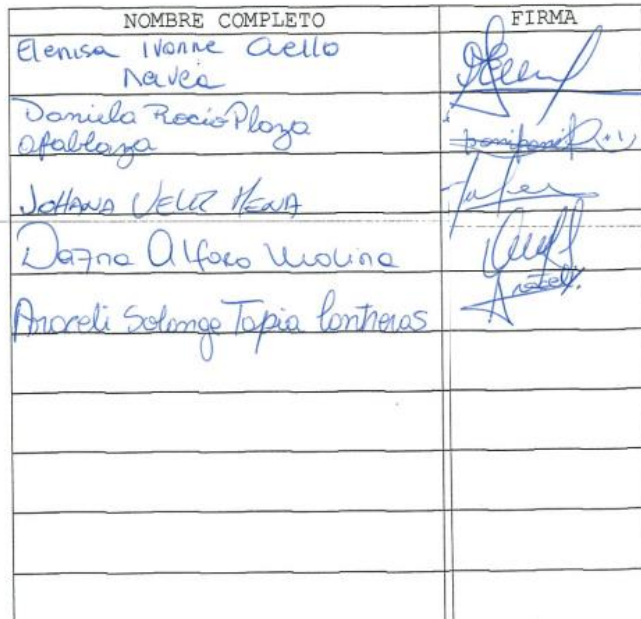 NOMBRE COMPLETO FIRMA
Elenisa Ivonne Cuello
Navea
Daniela Rocio Plaza
Ofablaza
JOHANA VELIZ MENA
Dafna Alfaro Molina
Araceli Solange Tapia Contreras